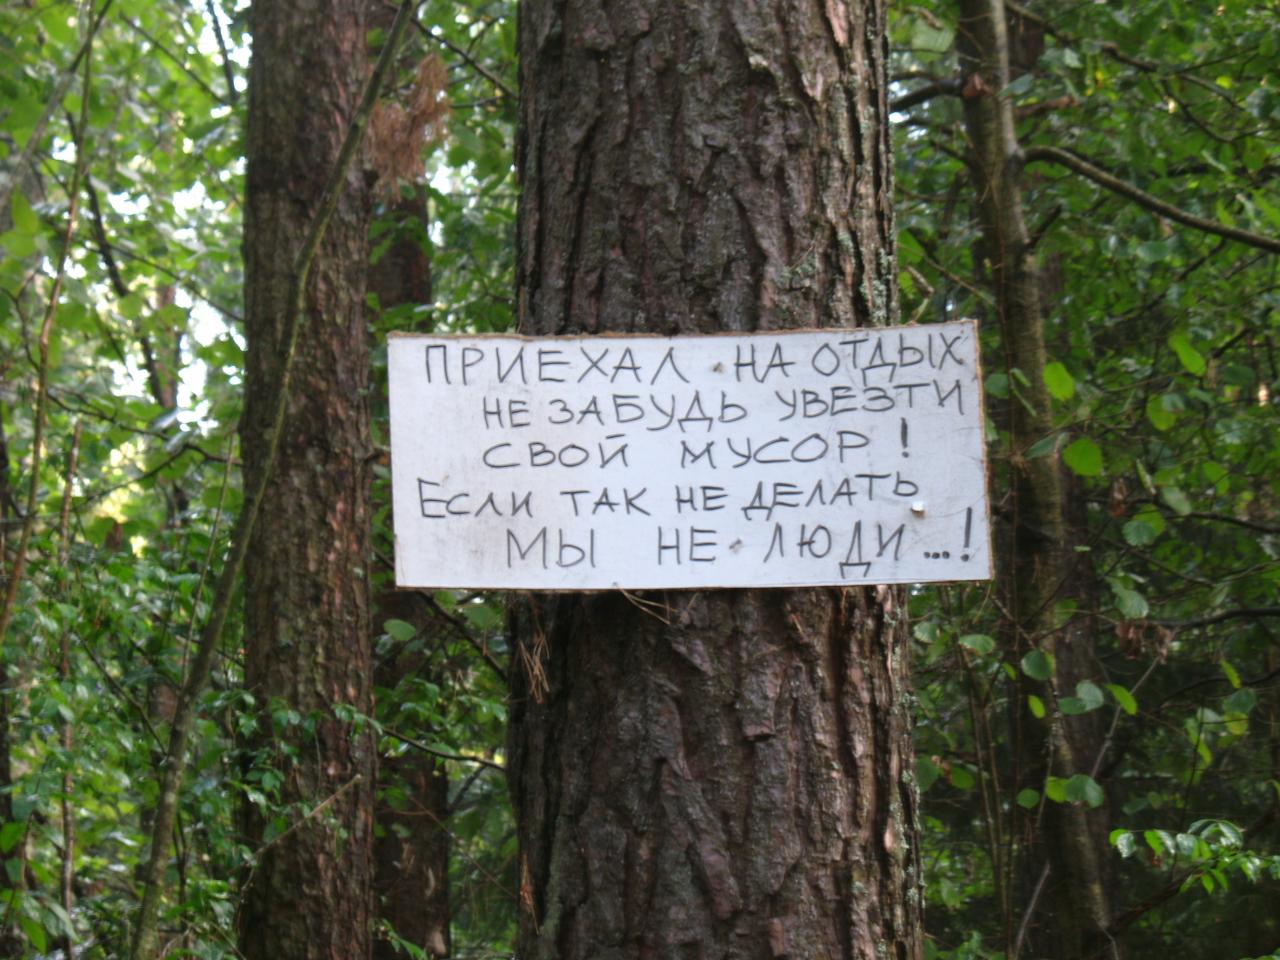 ПРИЕХАЛ НА ОТДЫХ
НЕ ЗАБУДЬ УВЕЗТИ
СВОЙ МУСОР!
ЕСЛИ ТАК НЕ ДЕЛАТЬ
МЫ НЕ ЛЮДИ...!